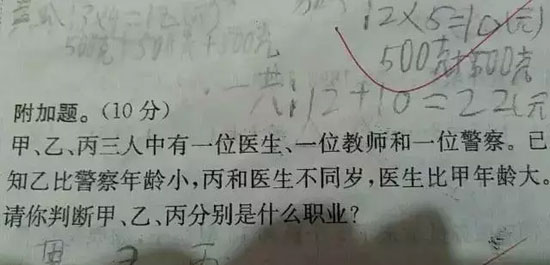 12×5=10(元)
500克+500克+500克
500克+500克
一共:12+10=22(元
附加题。(10分)
甲、乙、丙三人中有一位医生、一位教师和一位警察。已
知乙比警察年龄小,丙和医生不同岁,医生比甲年龄大。
请你判断甲、乙、丙分别是什么职业?